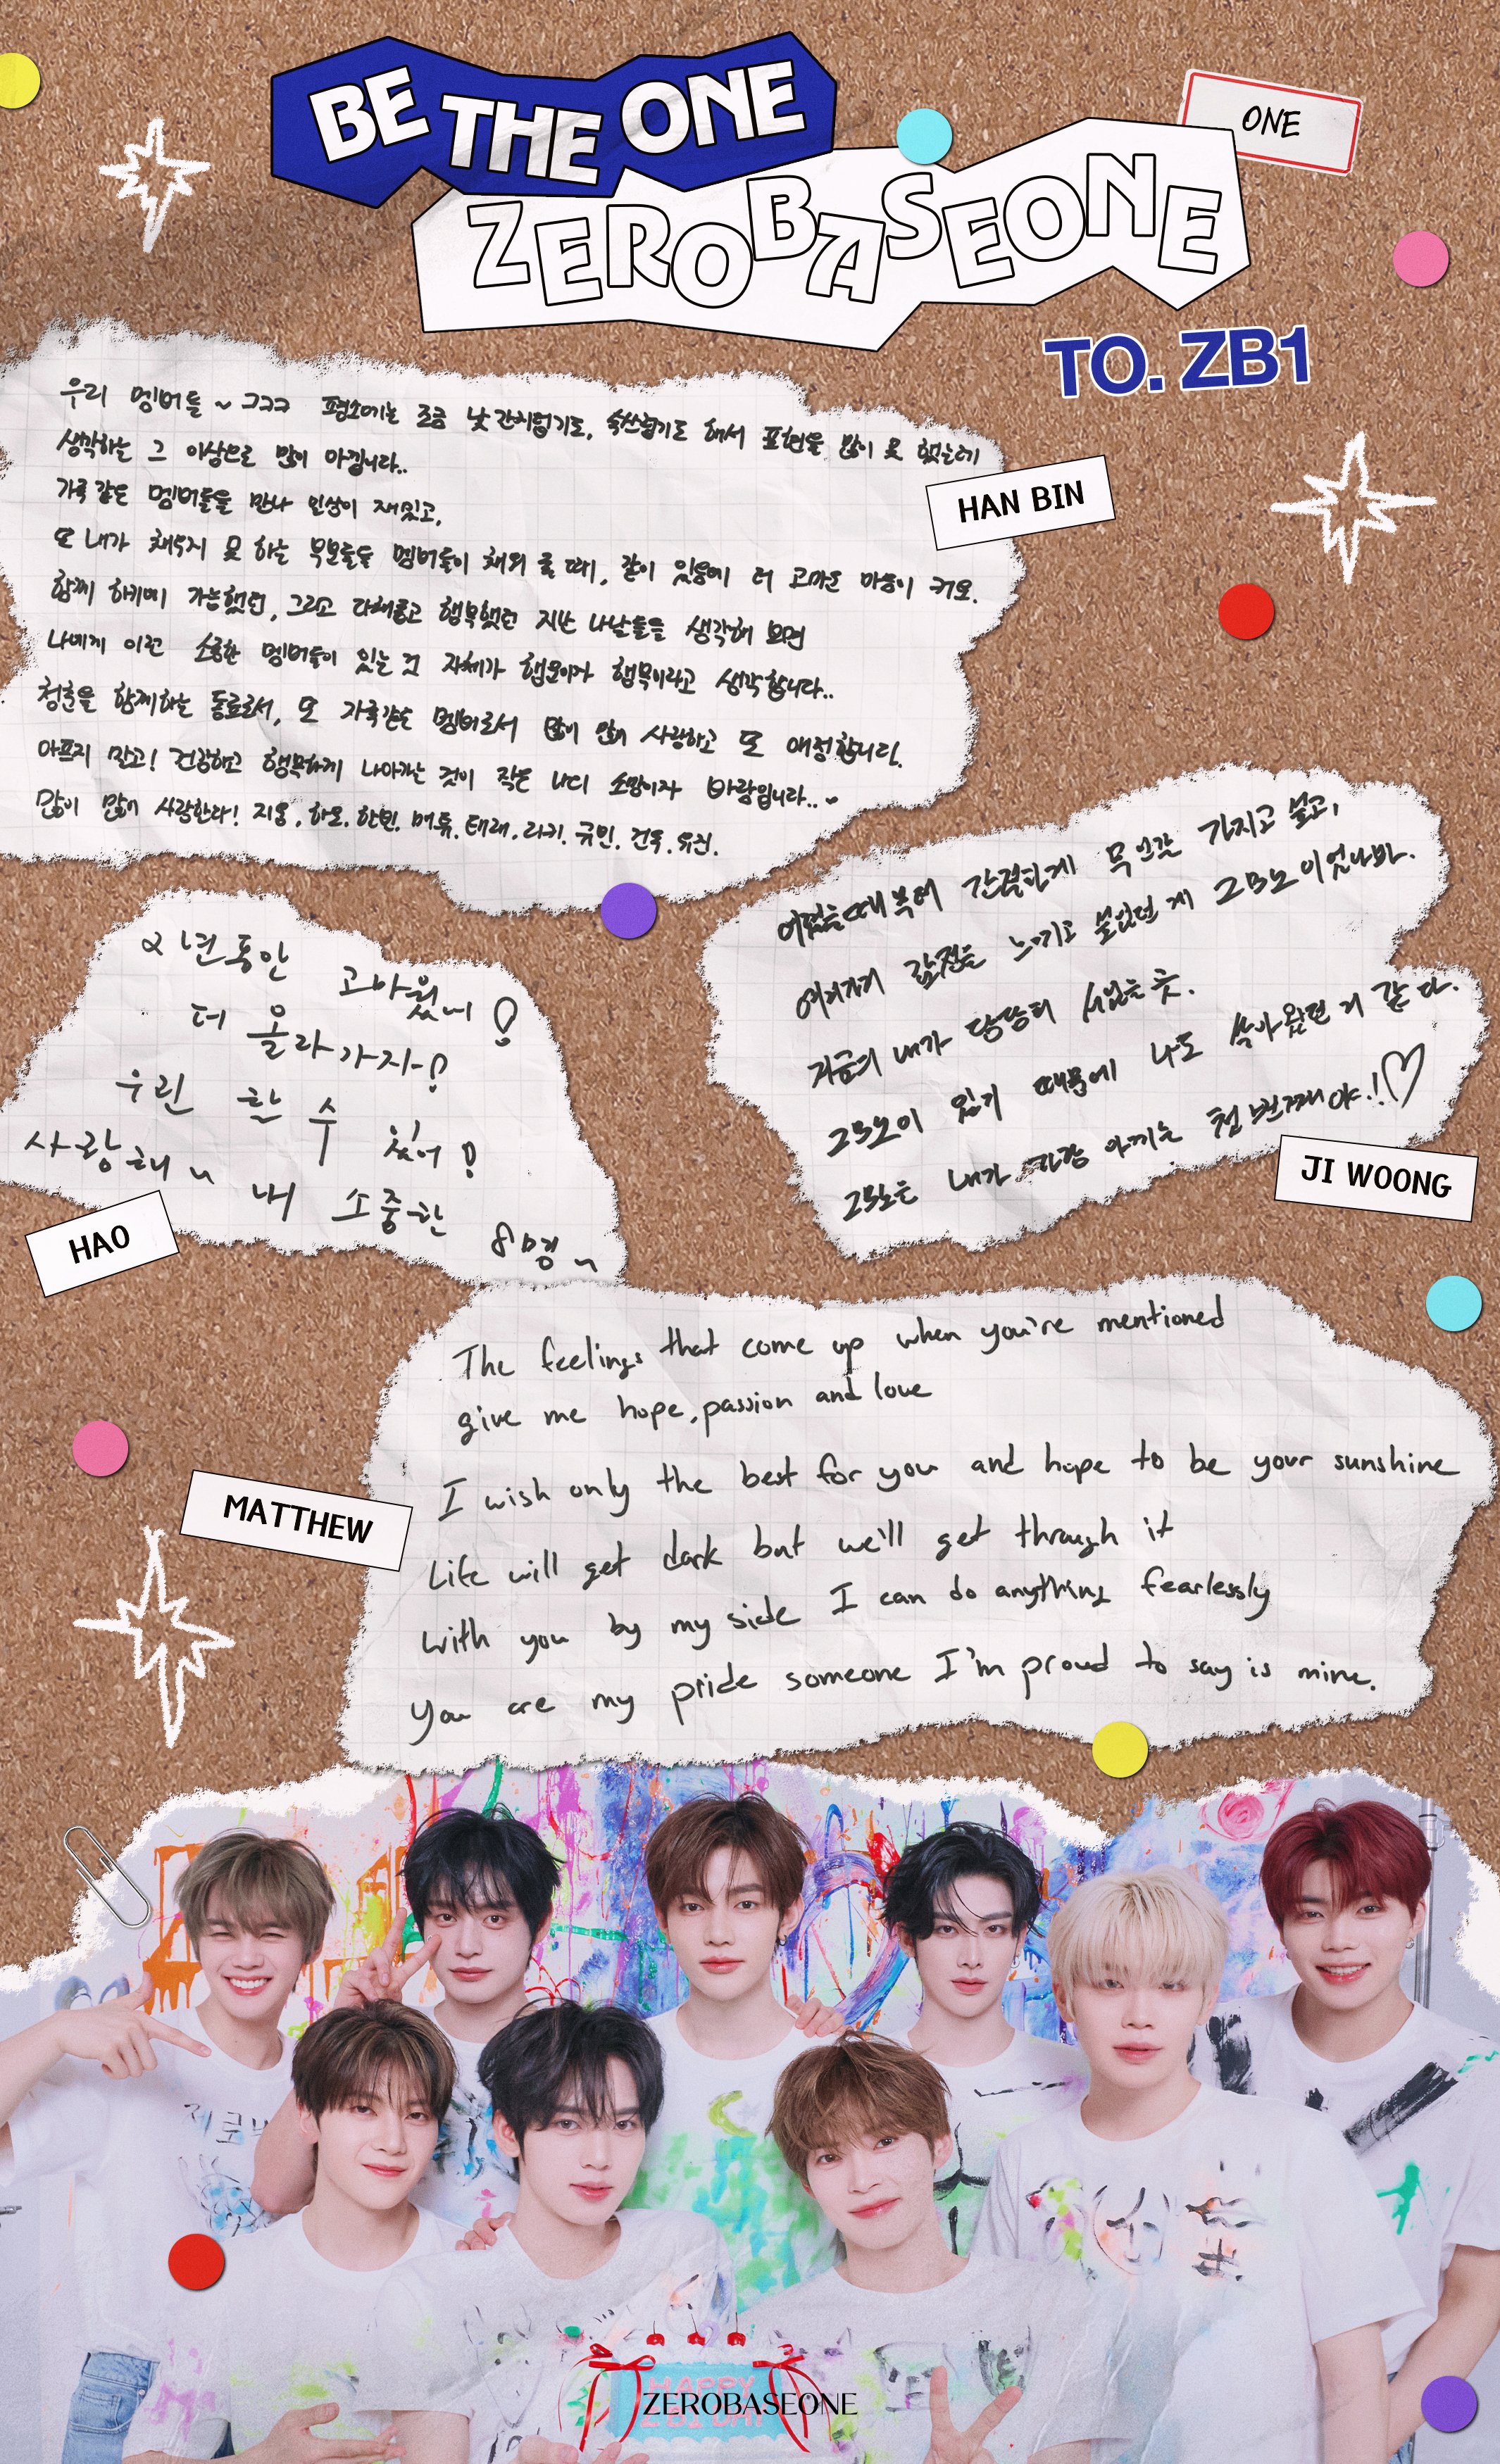 BE THE ONE
ONE
ZEROBASEONE
TO. ZB1
우리 멤버들 ~ ㅋㅋㅋ 평소에는 조금 낯간지럽기도, 쑥쓰럽기도 해서 표현을 많이 못 했는데
생각하는 그 이상으로 많이 아낍니다..
가족같은 멤버들을 만나 인생이 재밌고,
또 내가 채우지 못 하는 부분들을 멤버들이 채워 줄 때, 같이 있음에 더 고마운 마음이 커요.
함께 하기에 가능했던, 그리고 다채롭고 행복했던 지난 나날들을 생각해 보면
나에게 이런 소중한 멤버들이 있는 것 자체가 행운이자 행복이라고 생각합니다..
청춘을 함께하는 동료로서, 또 가족같은 멤버로서 많이 많이 사랑하고 또 애정합니다.
아프지 말고! 건강하고 행복하게 나아가는 것이 작은 나의 소망이자 바람입니다..
많이 많이 사랑한다! 지웅, 하오, 한빈, 매튜, 태래, 리키, 규빈, 건욱, 유진.
HAN BIN
어렸을때부터 간절하게 무언갈 가지고 싶고,
여러가지 감정을 느끼고 싶었던 게 그대들이었나봐.
지금의 내가 당당히 서있는 곳.
있기 때문에 나도 쌓아왔던 거 같다.
내가 가장 아끼는 첫 번째야!♡
JI WOONG
2년동안 고마웠어!
더 올라가자~!
우린 할 수 있어!
사랑해~ 내 소중한 8명~
HAO
The feelings that come up when you're mentioned
give me hope, passion and love
I wish only the best for you and hope to be your sunshine
Life will get dark but we'll get through it
With you by my side I can do anything fearlessly
You are my pride someone I'm proud to say is mine.
MATTHEW
제로베
HAPPY
ZB1 DAY
ZEROBASEONE